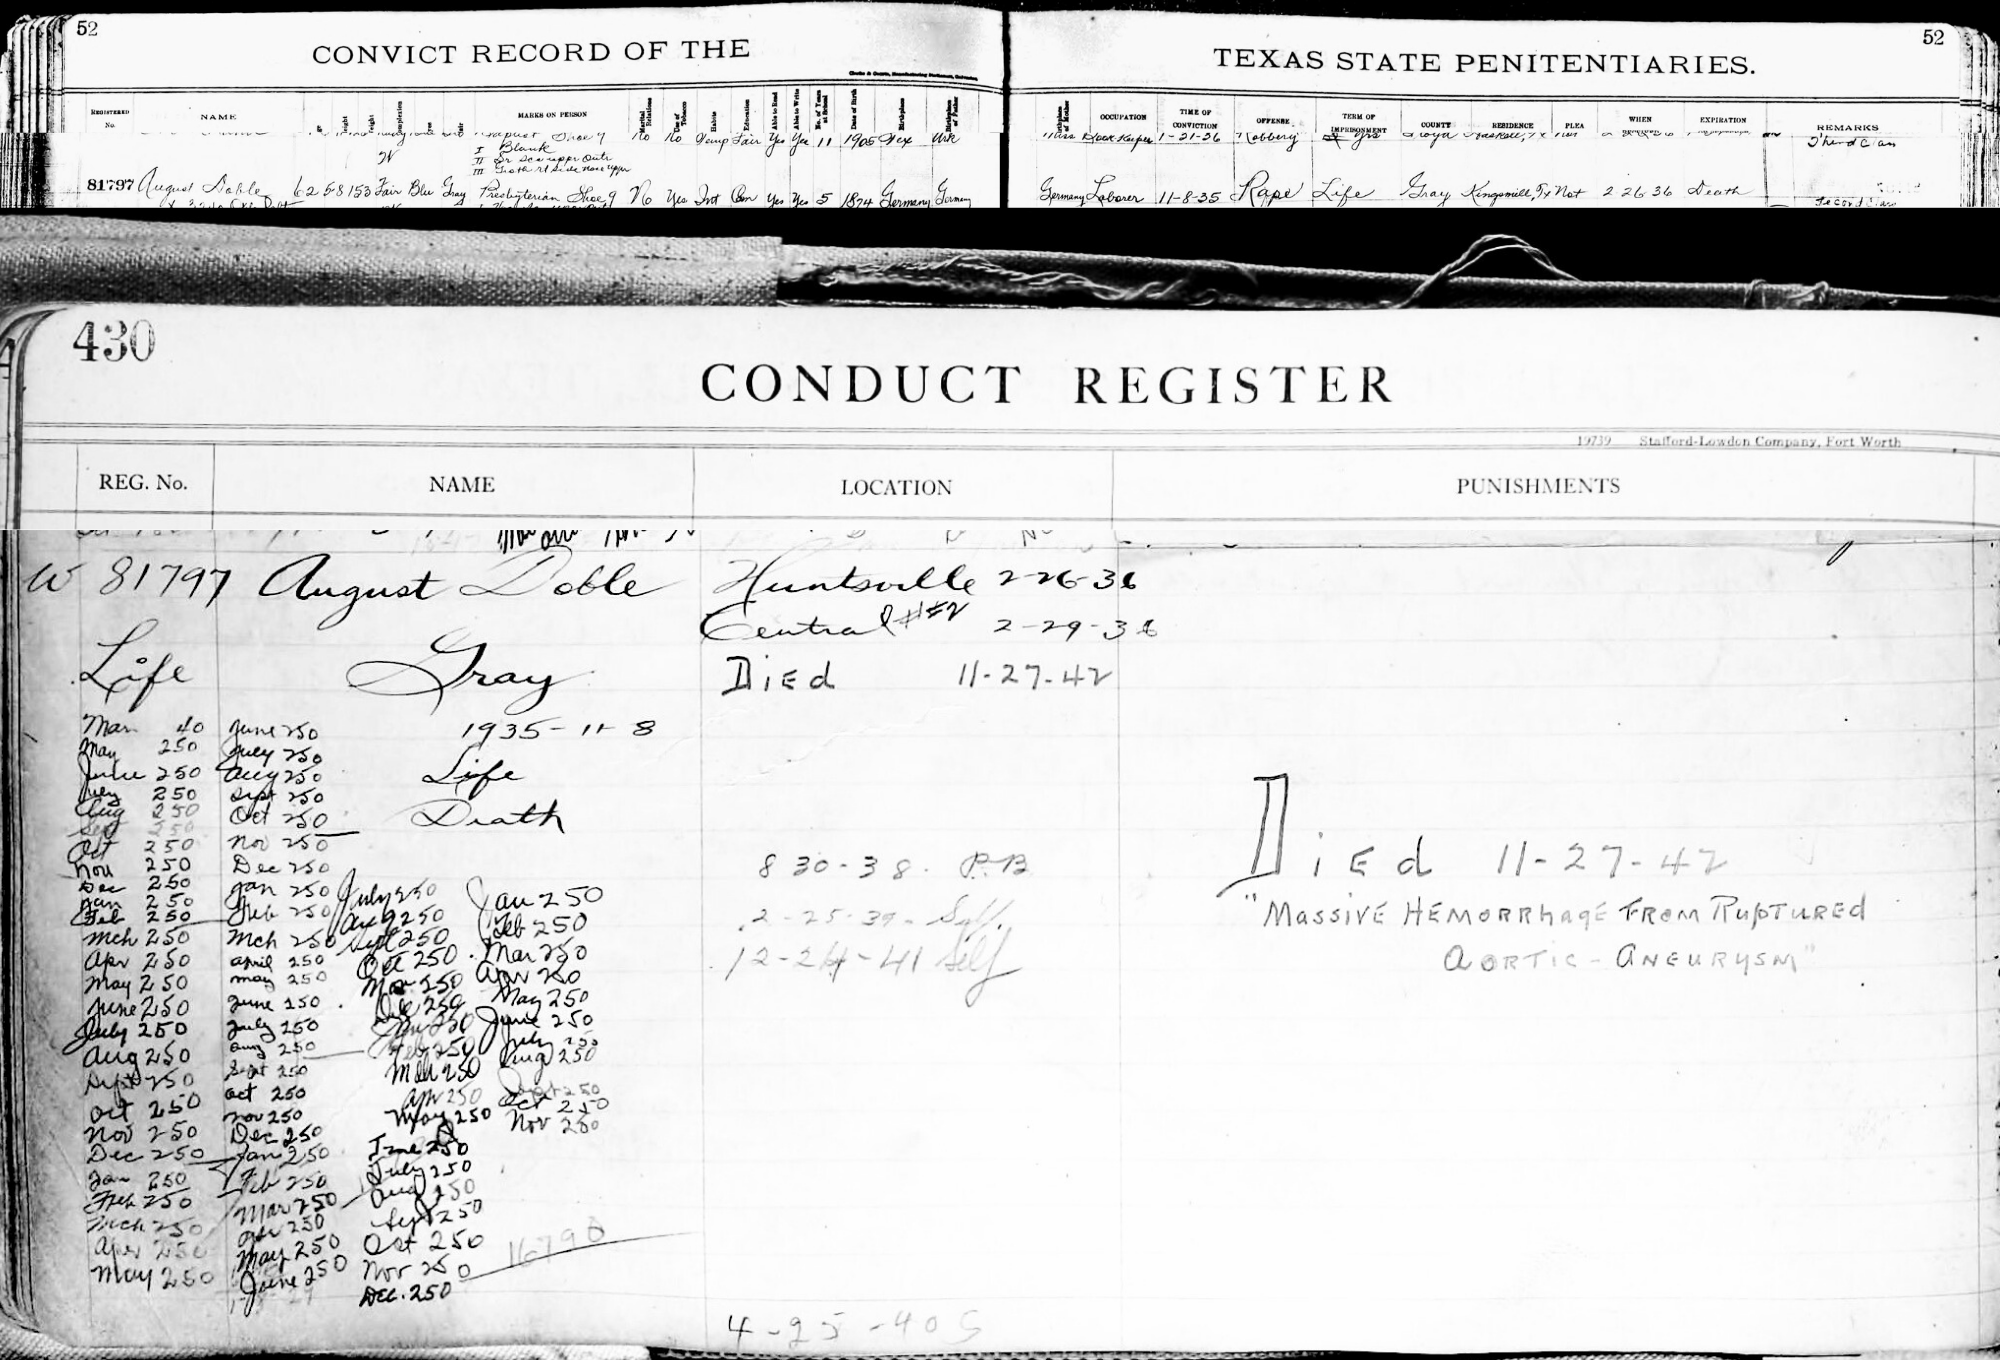 52
52
CONVICT RECORD OF THE
TEXAS STATE PENITENTIARIES.
REGISTERED No. NAME MARKS ON PERSON Marital Relations Use of Tobacco Habits Education Able to Read Able to Write No. of Years at School Date of Birth Birthplace Birthplace of Father
Birthplace of Mother OCCUPATION TIME OF CONVICTION OFFENSE TERM OF IMPRISONMENT COUNTY RESIDENCE PLEA WHEN EXPIRATION REMARKS
No No Temp Fair Yes Yes 11 1905 Tex Ark
1-21-36 Robbery
I Blank
81797 August Doble 62 5-8 153 Fair Blu Gray Presbyterian Shoe 9 No Yes Int Yes Yes 5 1874 Germany Germany
Germany Laborer 11-8-35 Rape Life Gray Kingsmill, Tx Not 2 26 36 Death
430
CONDUCT REGISTER
19739 Stafford-Lowdon Company, Fort Worth
REG. No. NAME LOCATION PUNISHMENTS
W 81797 August Doble Huntsville 2-26-36
Central #2 2-29-36
Life Gray Died 11-27-42
1935-11-8
Life
Death
Mar 40
May 250
June 250
July 250
Aug 250
Sep 250
Oct 250
Nov 250
Dec 250
Jan 250
Feb 250
Mch 250
Apr 250
May 250
June 250
July 250
Aug 250
Sept 250
Oct 250
Nov 250
Dec 250
Jan 250
Feb 250
Mch 250
Apr 250
May 250
June 250
July 250
Aug 250
Sept 250
Oct 250
Nov 250
Dec 250
Jan 250
Feb 250
Mch 250
april 250
may 250
June 250
July 250
aug 250
Sept 250
oct 250
nov 250
Dec 250
Jan 250
Feb 250
Mar 250
apr 250
May 250
June 250
July 250
Aug 250
Sept 250
Oct 250
Nov 250
Dec 250
Jan 250
Feb 250
Mar 250
Apr 250
May 250
June 250
July 250
Aug 250
Sept 250
Oct 250
Nov 250
Dec. 250
Jan 250
Feb 250
Mar 250
Apr 250
May 250
June 250
July 250
Aug 250
Sept 250
Oct 250
Nov 250
16790
8 30-38. P.B
2-25-39-
12-24-41 Self
4-25-40 S
Died 11-27-42
"Massive Hemorrhage From Ruptured
Aortic-Aneurysm"